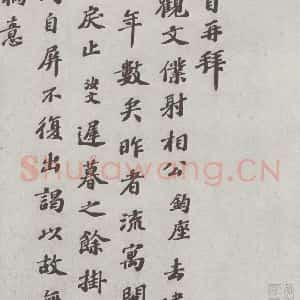 再拜
觀文僕射相公鈞座去
年數矣昨者流寓閩
戾止汝文遲暮之餘掛
自屏不復出謁以故無
意
Shufawang.CN